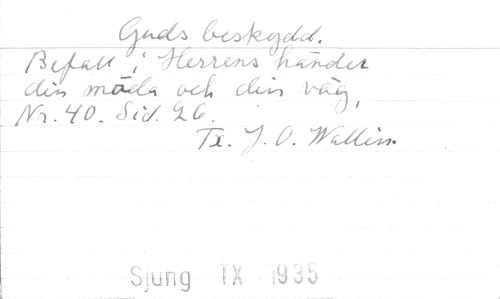 Guds beskydd.
Befall i Herrens händer
din möda och din väg,
Nr. 40. Sid. 26.
Tx. J. O. Wallin.
Sjung IX 1935